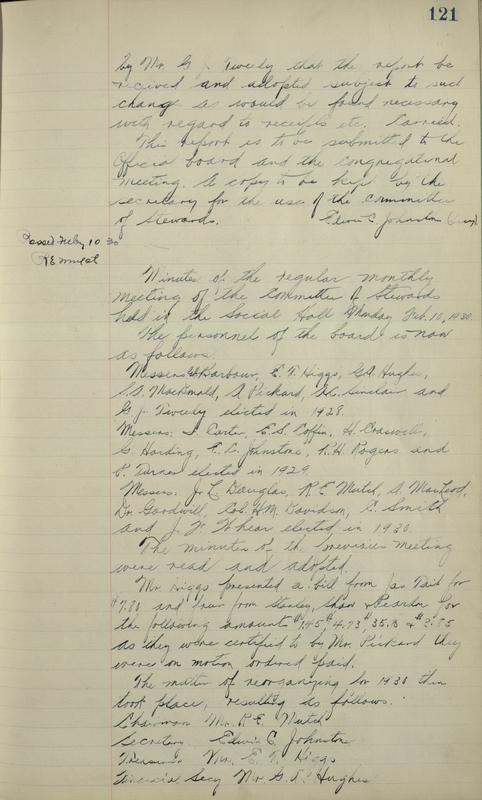 121
by Mr. G. J. Tweedy that the report be
received and adopted, subject to such
change as would be found necessary
with regard to receipts etc. Carried.
This report is to be submitted to the
Official board and the congregational
meeting. A copy to be kept by the
secretary for the use of the committee
of Stewards. Edwin C. Johnstone
Passed Feby 10 30
R E Mutch
Minutes of the regular monthly
meeting of the Committee of Stewards
held in the Social Hall Monday Feb. 10, 1930.
The personnel of the board is now
as follows.
Messers Barbour, E. T. Higgs, G. A. Hughes,
S. A. MacDonald, A Pickard, Sinclair and
G. J. Tweedy elected in 1928.
Messers: Carter, E. S. Coffin, H. Craswell,
G. Harding, E. C. Johnstone, R. H. Rogers and
P. Turner elected in 1929
Messers: J. L. Douglas, R. E. Mutch, A. MacLeod,
Dr. Goodwill, Col. H.M. Davidson, C. Smith
and J. F. Whear elected in 1930.
The minutes of the previous meeting
were read and adopted.
Mr. Higgs presented a bill from Jas Tait for
$7.80 and from Stanley, Shaw & Peardon for
the following amounts $1.45 $4.73 $35.18 & $3.85
as they were certified to by Mr. Pickard they
were on motion ordered paid.
The matter of reorganizing for 1930 then
took place, resulting as follows.
Chairman Mr. R. E. Mutch
Secretary Edwin C. Johnstone
Treasurer Mr. E. T. Higgs
Financial Secy Mr. G. A. Hughes